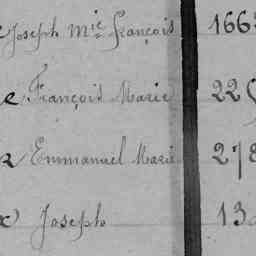 Joseph Mie François 166
François Marie 22
Emmanuel Marie 278
Joseph 13